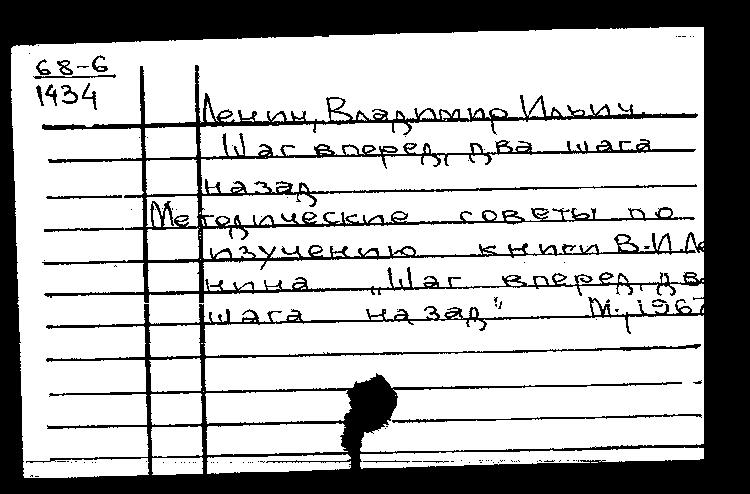 68-6
1434
Ленин, Владимир Ильич.
Шаг вперед, два шага
назад
Методические советы по
изучению книги В.И.Ле
нина „Шаг вперед, два
шага назад" М., 1967